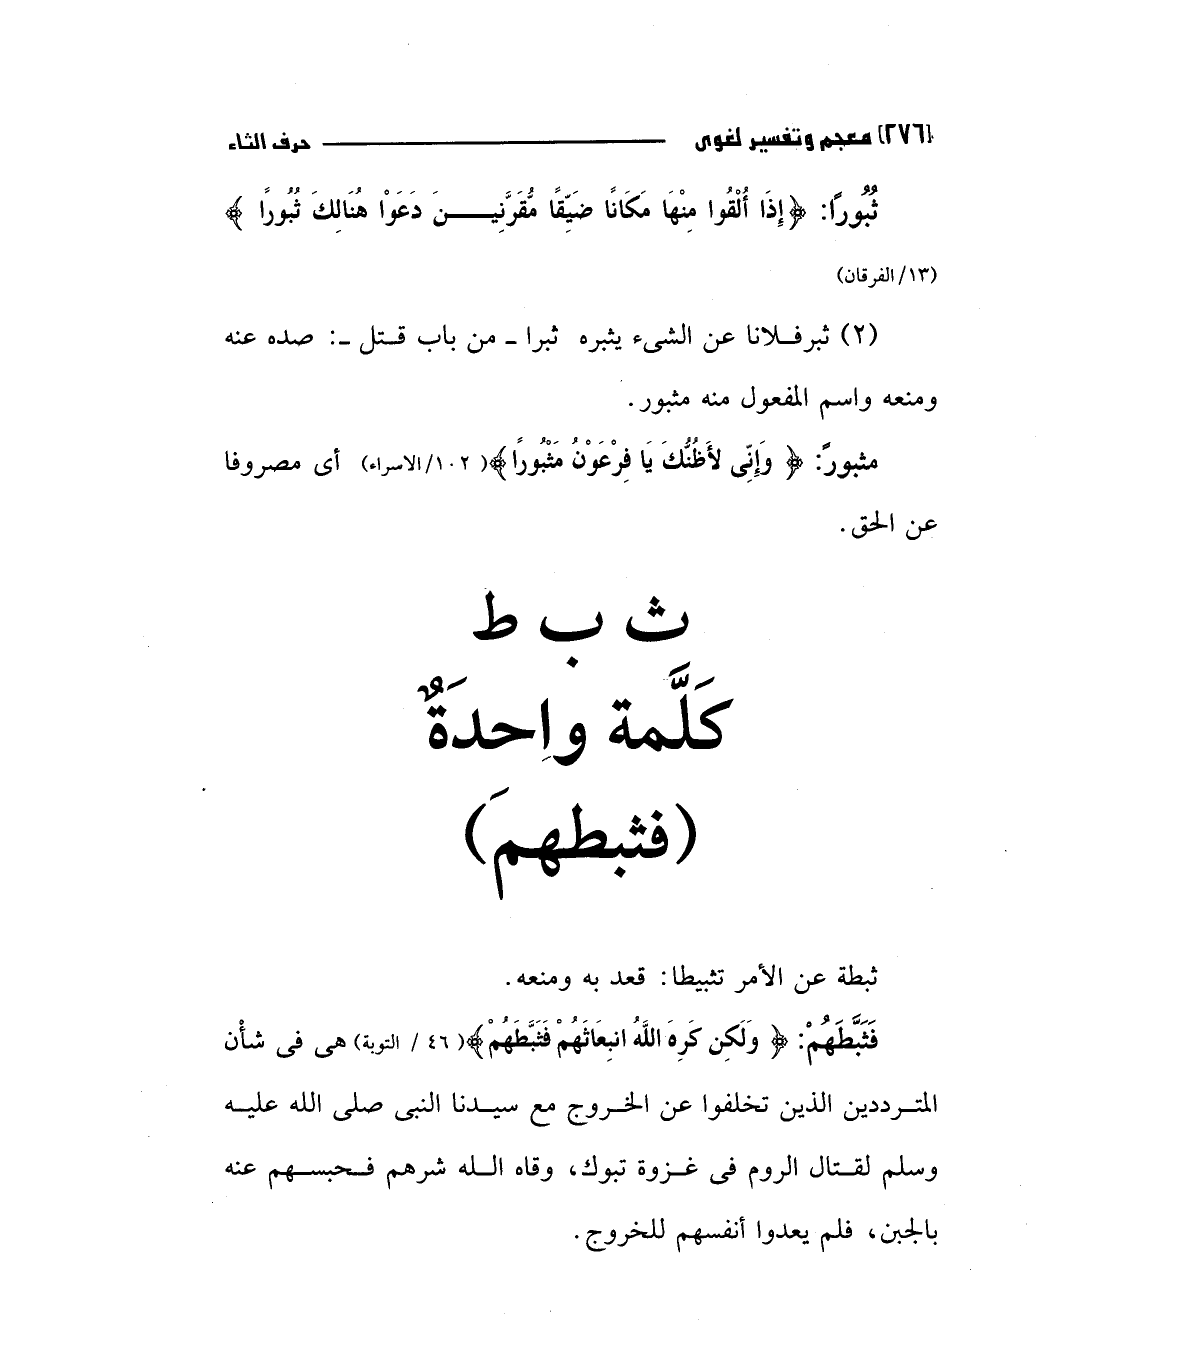 (٢٧٦) معجم وتفسير لغوى ــــــ حرف الثاء
ثُبُورًا: ﴿إِذَا أُلْقُوا مِنْهَا مَكَانًا ضَيِّقًا مُّقَرَّنِيــــنَ دَعَوْا هُنَالِكَ ثُبُورًا ﴾
(١٣/ الفرقان)
(٢) ثبرفـلانا عن الشىء يثبره ثبرا ـ من باب قـتل ـ: صده عنه
ومنعه واسم المفعول منه مثبور.
مثبورً: ﴿ وَإِنِّى لأَظُنُّكَ يَا فِرْعَوْنُ مَثْبُورًا﴾(١٠٢/الاسراء) أى مصروفا
عن الحق.
ث ب ط
كَلَّمة واِحدَةٌ
(فثبطهمَ)
ثبطة عن الأمر تثبيطا: قعد به ومنعه.
فَثَبَّطَهُمْ: ﴿ وَلَكِن كَرِهَ اللَّهُ انبِعَاثَهُمْ فَثَبَّطَهُمْ﴾(٤٦ / التوبة) هى فى شأن
المتـرددين الذين تخلفوا عن الخـروج مع سيـدنا النبى صلى الله عليـه
وسلم لقـتال الروم فى غـزوة تبوك، وقاه الـله شرهم فـحبسـهم عنه
بالجبن، فلم يعدوا أنفسهم للخروج.